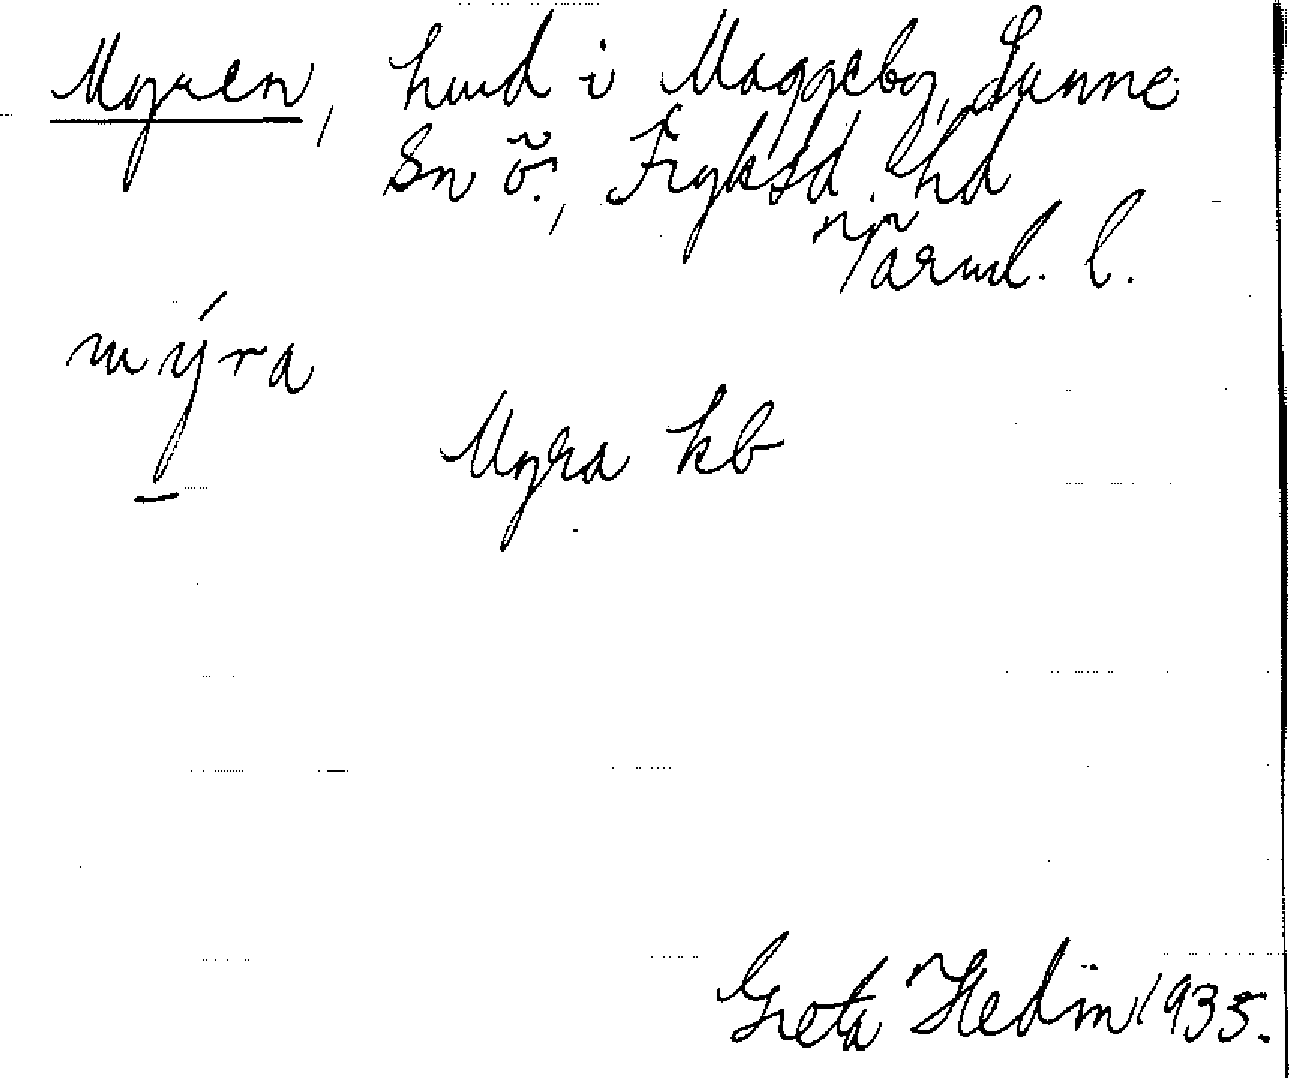 Myren, hmd i Maggeby, Sunne
Sn ö., Fryksd. hd
Värml. l.
mýra
Myra kb
Greta Hedin 1935.